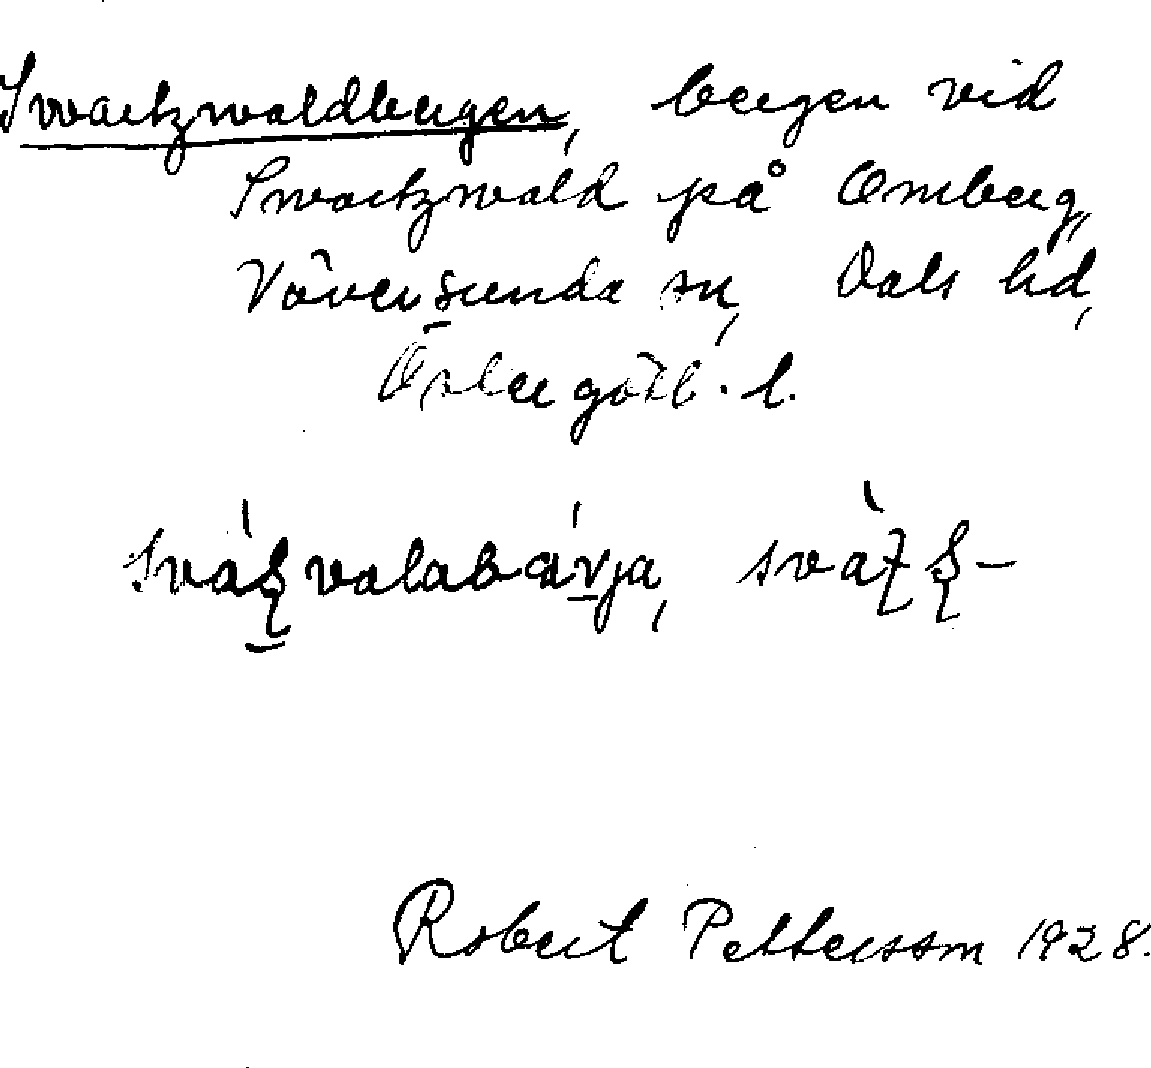 Swartzwaldbergen, bergen vid
Swartzwald på Omberg,
Väversunda sn, Dals hd,
Östergötl. l.
svalabárja, sva
Robert Pettersson 1928.